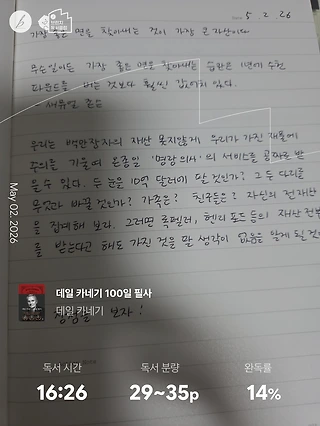 5 2 26
가장 좋은 면을 찾아내는 것이 가장 큰 자산이다
무슨일이든 가장 좋은 면을 찾아내는 습관은 1년에 수천
파운드를 버는 것보다 훨씬 값어치 있다.
- 새뮤얼 존슨
우리는 백만장자의 재산 못지않게 우리가 가진 재물에
주의를 기울여 온종일 '명랑의사'의 서비스를 공짜로 받
을 수 있다. 두 눈을 10억 달러에 팔 것인가? 그 두 다리를
무엇과 바꿀 것인가? 가족은? 친구들은? 자신의 전 재산
을 집계해 보라. 그러면 록펠러, 헨리 포드 등의 재산 전부
를 받는다고 해도 가진 것을 팔 생각이 없음을 알게 될 것
May 02, 2026
데일 카네기 100일 필사
데일 카네기
보자!
독서 시간
독서 분량
완독률
16:26
29~35p
14%